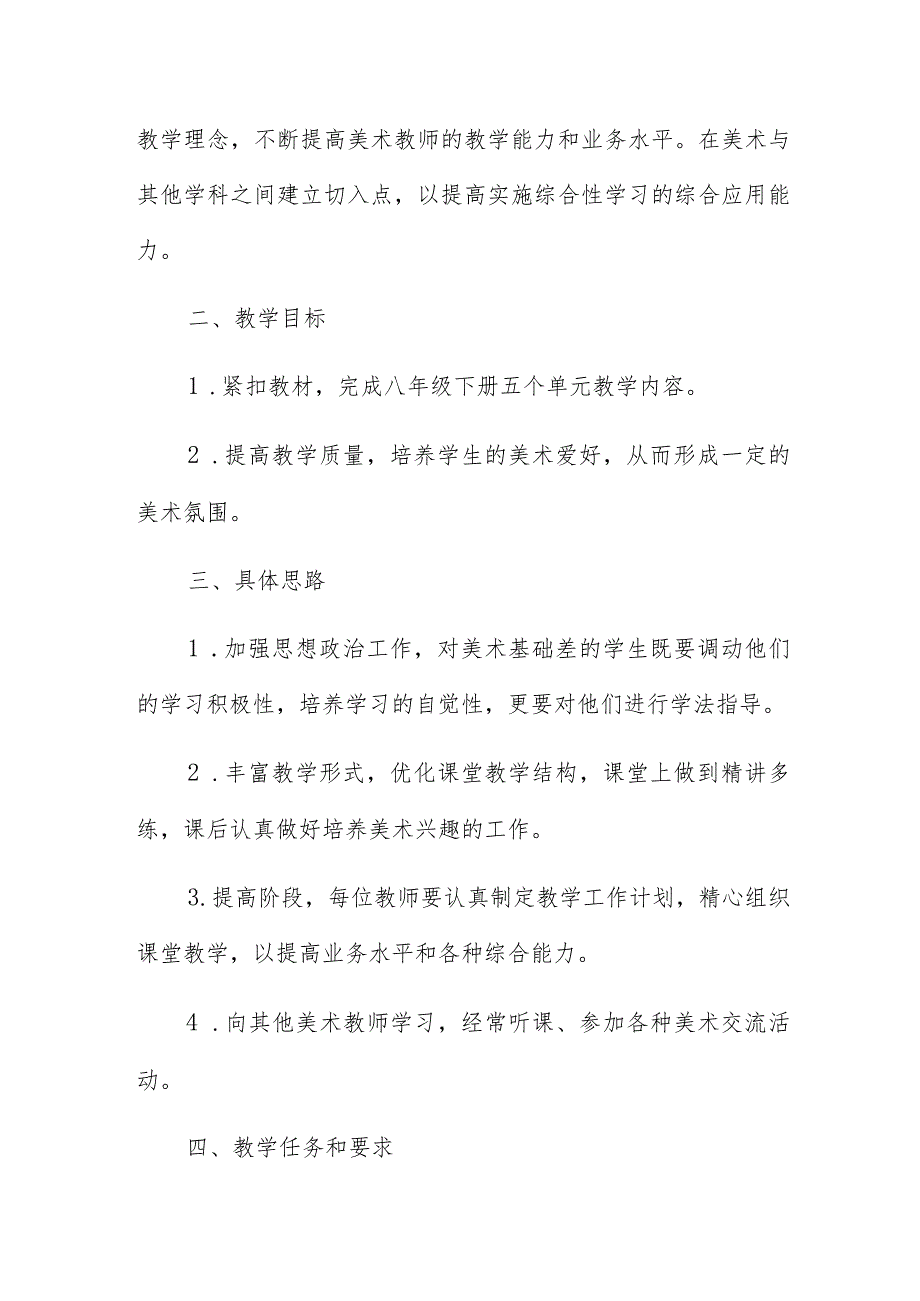 教学理念，不断提高美术教师的教学能力和业务水平。在美术与
其他学科之间建立切入点，以提高实施综合性学习的综合应用能
力。
二、教学目标
1 .紧扣教材，完成八年级下册五个单元教学内容。
2 .提高教学质量，培养学生的美术爱好，从而形成一定的
美术氛围。
三、具体思路
1 .加强思想政治工作，对美术基础差的学生既要调动他们
的学习积极性，培养学习的自觉性，更要对他们进行学法指导。
2 .丰富教学形式，优化课堂教学结构，课堂上做到精讲多
练，课后认真做好培养美术兴趣的工作。
3.提高阶段，每位教师要认真制定教学工作计划，精心组织
课堂教学，以提高业务水平和各种综合能力。
4 .向其他美术教师学习，经常听课、参加各种美术交流活
动。
四、教学任务和要求